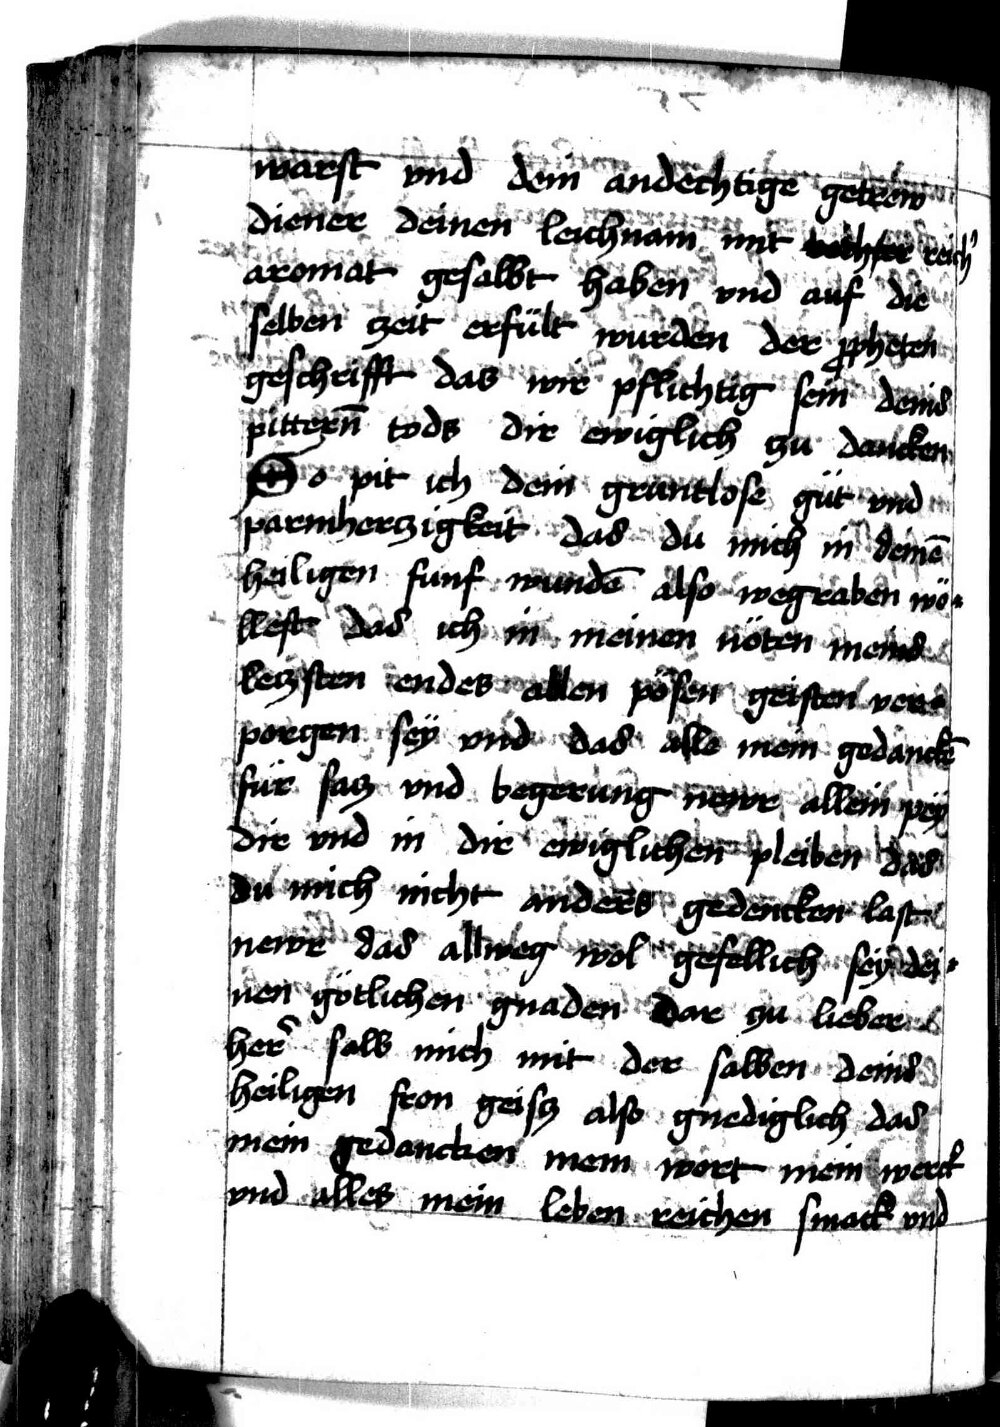 warst vnd dein andechtige getrew
diener deinen leichnam mit reich'
aromat gesalbt haben vnd auf die
selben zeit erfült wurden der ꝓpheten
geschrifft das wir pflichtig sein deins
pittern̄ tods dir ewiglich zu dancken
So pit ich dein gruntlose güt vnd
parmherzigkeit das du mich in deinē
heiligen funf wundē also wegraben wö-
llest das ich in meinen nöten meins
leczsten endes allen pösen geisten ver-
porgen sey vnd das alle mein gedanckē
für sacz vnd begerung newr allein pey
dir vnd in dir ewiglichen pleiben das
du mich nicht anders gedencken last
newr das allweg wol gefellich sey dei-
nen götlichen gnaden Dar zu lieber
her᷑ salb mich mit der salben deins
heiligen fron geistz also gnediglich das
mein gedancken mein wort mein werck
vnd alles mein leben reichen smack vnd